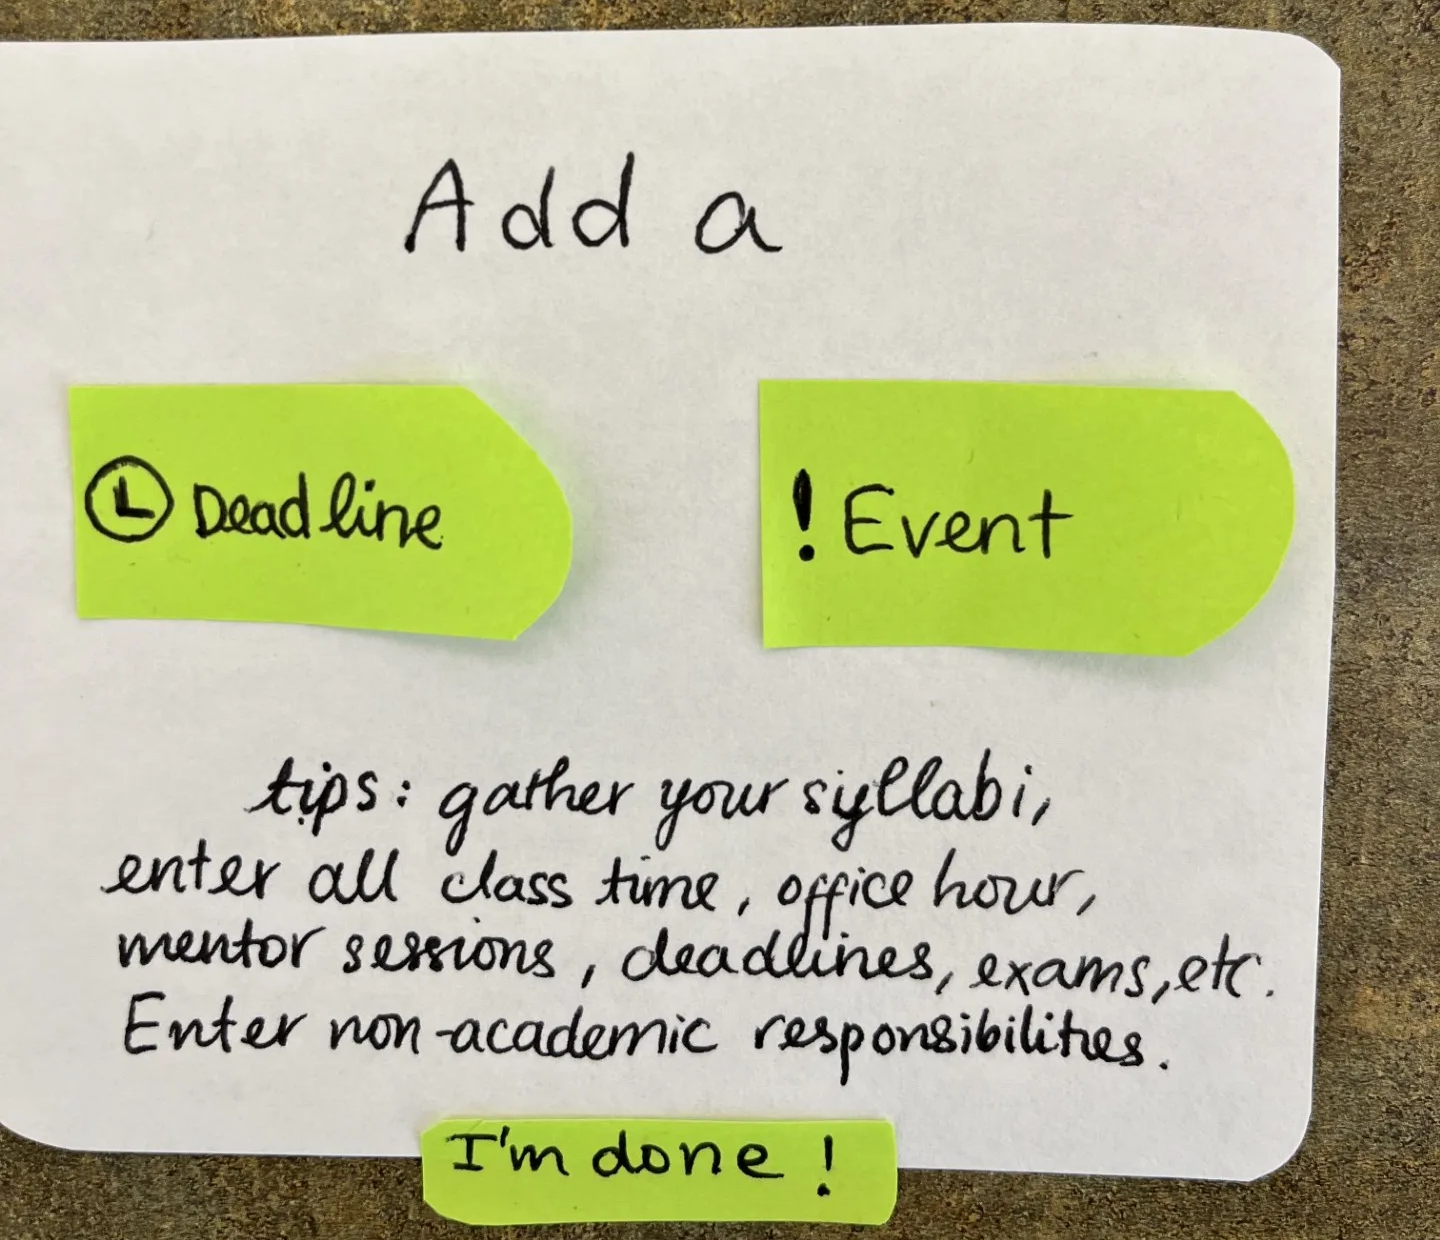 Add a
Deadline
! Event
tips: gather your syllabi,
enter all class time, office hour,
mentor sessions, deadlines, exams, etc.
Enter non-academic responsibilities.
I'm done!